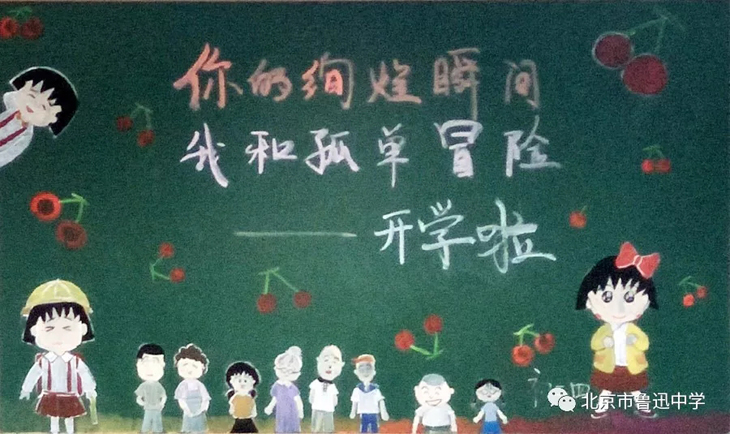 你的绚烂瞬间
我和孤单冒险
——开学啦
北京市鲁迅中学